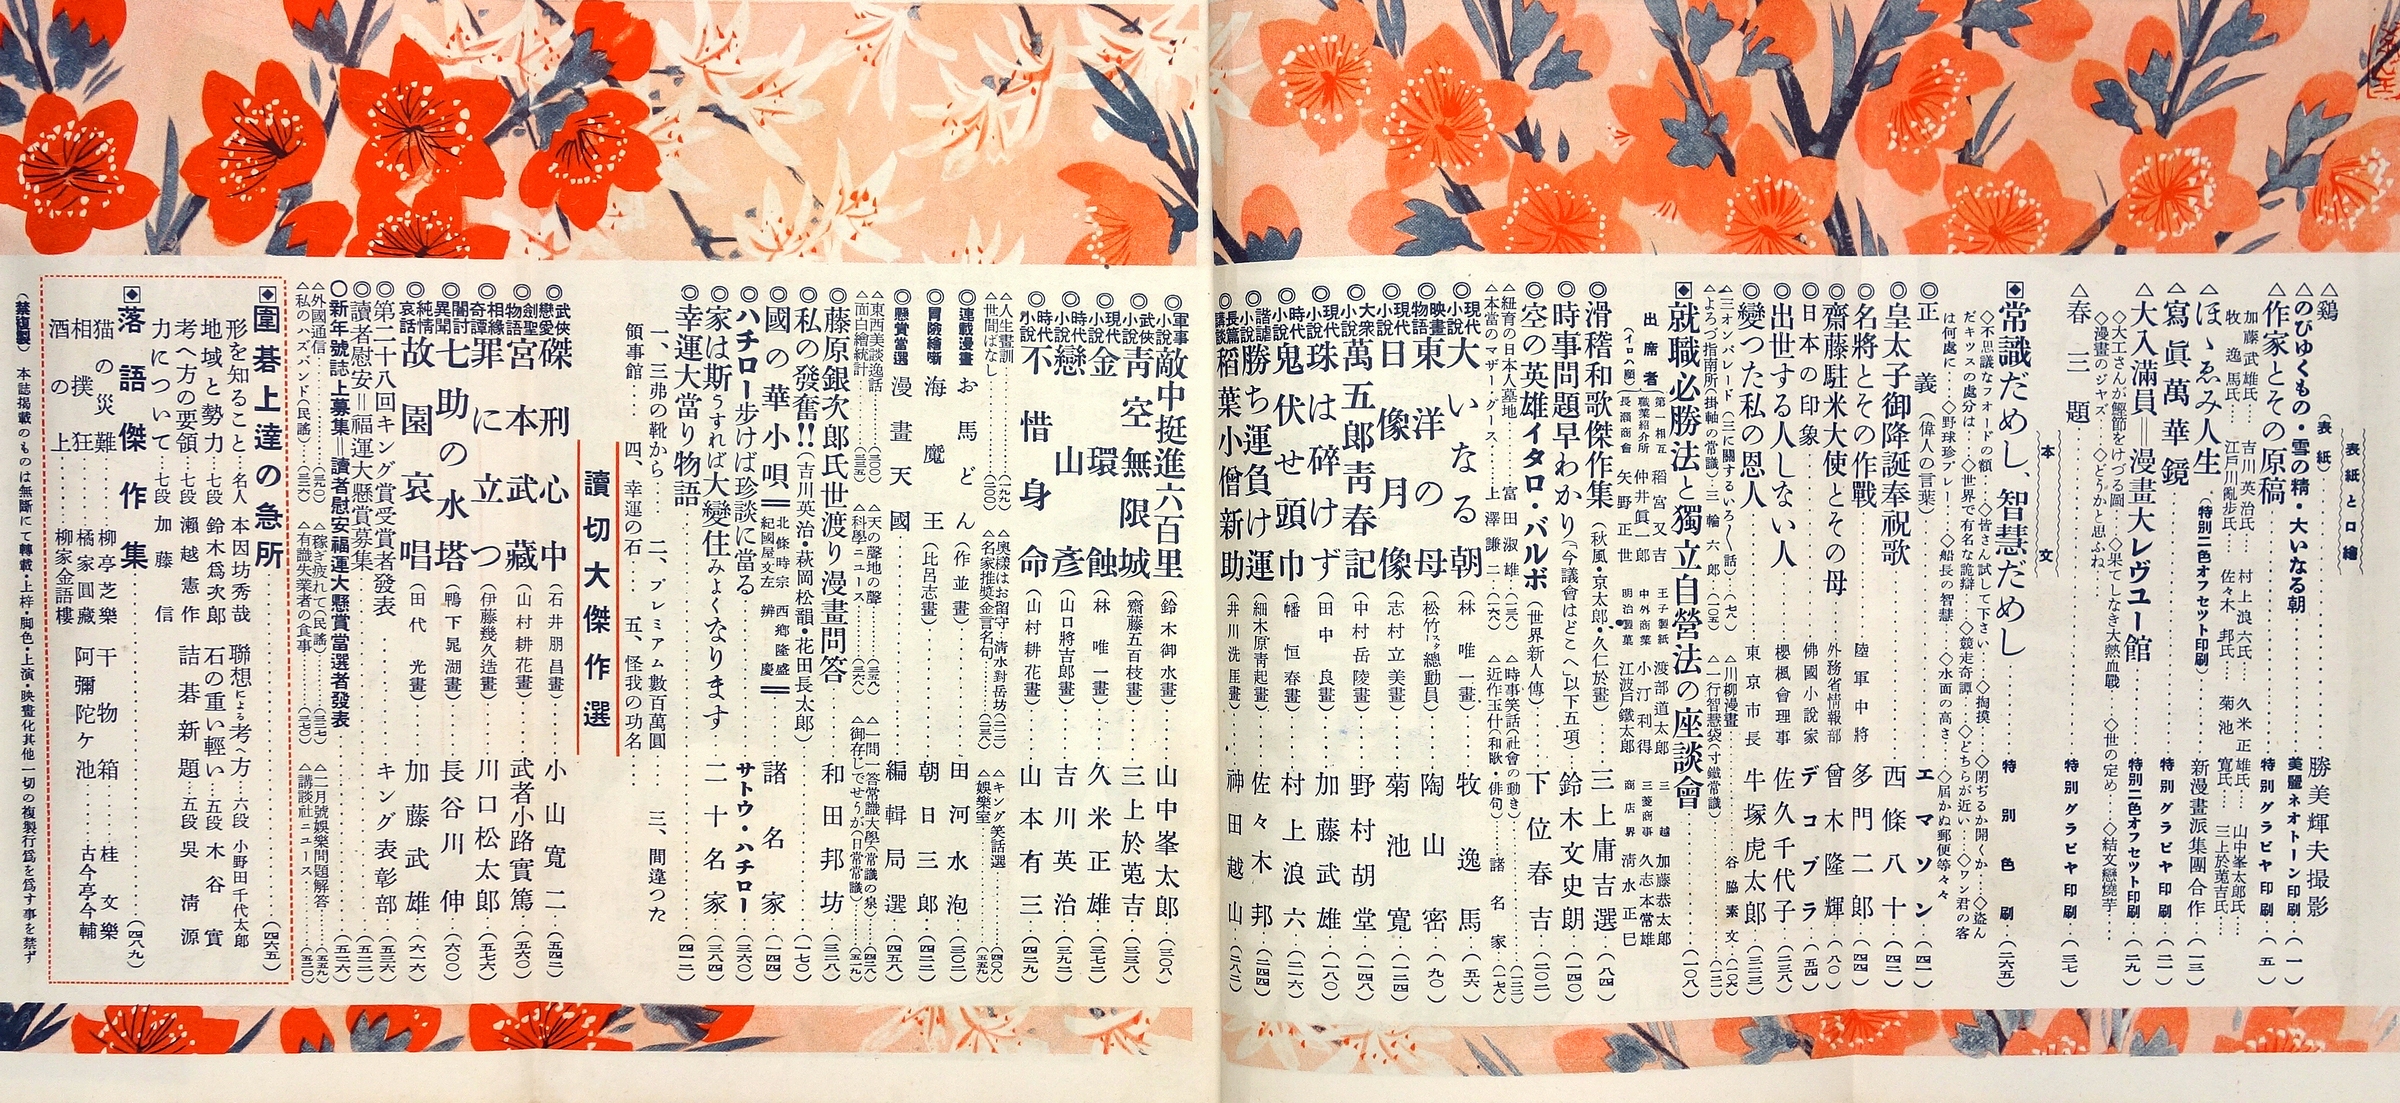 表紙と口繪
△鷄(表紙)……勝美輝夫撮影
△のびゆくもの・雪の精・大いなる朝……美麗ネオトーン印刷…(一)
△作家とその原稿……特別グラビヤ印刷…(五)
加藤武雄氏… 吉川英治氏… 村上浪六氏… 久米正雄氏… 山中峯太郎氏…
牧逸馬氏… 江戸川亂歩氏… 佐々木邦氏… 菊池寛氏… 三上於菟吉氏…
△ほゝゑみ人生(特別二色オフセット印刷)……新漫畫派集團合作…(一三)
△寫眞萬華鏡……特別グラビヤ印刷…(二一)
△大入滿員＝漫畫大レヴユー館……特別二色オフセット印刷…(二九)
◇大工さんが鰹節をけづる圖…◇果てしなき大熱血戰…◇世の定め…◇結文戀燒芋…
◇漫畫のジヤズ…◇どうかと思ふね…
△春三題……特別グラビヤ印刷…(三七)
本文
常識だめし、智慧だめし……特別色刷…(二六五)
◇不思議なフオードの額…◇皆さん試して下さい…◇掏摸…◇閉ぢるか開くか…◇盗ん
だキツスの處分は…◇世界で有名な詭辯…◇競走奇譚…◇どちらが近い…◇ワン君の客
は何處に…◇野球珍プレー…◇船長の智慧…◇水面の高さ…◇届かぬ郵便等々々
正義(偉人の言葉)……エマソン…(四一)
皇太子御降誕奉祝歌……西條八十…(四二)
◎名將とその作戰……陸軍中將 多門二郎…(四四)
◎齋藤駐米大使とその母……外務省情報部 曾木隆輝…(八〇)
◎日本の印象……佛國小説家 デコブラ…(五四)
◎出世する人しない人……櫻楓會理事 佐久千代子…(二三八)
◎變つた私の恩人……東京市長 牛塚虎太郎…(三二三)
△三オンパレード(三に關するいろ〳〵話)…(七八) △川柳漫畫……谷脇素文…(一〇六)
△よろづ指南所(掛軸の常識)…三輪六郎…(一五) △一行智慧袋(寸鐵常識)…(一二二)
就職必勝法と獨立自營法の座談會……(一〇八)
出席者(イロハ順)
第一相互 稻宮又吉 王子製紙 渡部道太郎 三越 加藤恭太郎
職業紹介所 仲井眞一郎 中外商業 小汀利得 三菱商事 久志本常雄
長瀬商會 矢野正世 明治製菓 江波戸鐵太郎 商店界 清水正巳
◎滑稽和歌傑作集(秋風・京太郎・久仁於畫)……三上庸吉選…(八四)
◎時事問題早わかり(今議會はどこへ(以下五項)……鈴木文史朗…(一四〇)
◎空の英雄イタロ・バルボ(世界新人傳)……下位春吉…(二〇二)
△紐育の日本人墓地……富田淑雄…(一三八) △時事笑話(社會の動き)……(一三三)
△本當のマザーグース…上澤謙二…(一六八) △近作玉什(和歌・俳句)……諸名家…(一七八)
◎現代小説 大いなる朝(林唯一畫)……牧逸馬…(五六)
◎映畫物語 東洋の母(松竹スタ總動員)……陶山密…(九〇)
◎現代小説 日像月像(志村立美畫)……菊池寛…(一二四)
◎大衆小説 萬五郎靑春記(中村岳陵畫)……野村胡堂…(一四八)
◎現代小説 珠は碎けず(田中良畫)……加藤武雄…(一八〇)
◎時代小説 鬼伏せ頭巾(幡恒春畫)……村上浪六…(二一六)
◎諧謔小説 勝ち運負け運(細木原靑起畫)……佐々木邦…(二四四)
◎長篇講談 稻葉小僧新助(井川洗厓畫)……神田越山…(二八二)
◎軍事小説 敵中挺進六百里(鈴木御水畫)……山中峯太郎…(三〇八)
◎武俠小説 靑空無限城(齋藤五百枝畫)……三上於菟吉…(三三八)
◎現代小説 金環蝕(林唯一畫)……久米正雄…(三七二)
◎時代小説 戀山彥(山口將吉郎畫)……吉川英治…(三九二)
◎時代小説 不惜身命(山村耕花畫)……山本有三…(四二九)
△人生畫訓……(一九八) △奥様はお留守…清水對岳坊…(二一二) △キング笑話選……(四〇八)
△世間ばなし……(三〇〇) △名家推奬金言名句……(二三八) △娯樂室……(五五九)
◎連載漫畫 お馬どん(作並畫)……田河水泡…(三〇二)
◎冒險繪噺 海魔王(比呂志畫)……朝日三郎…(四二二)
◎懸賞當選 漫畫天國……編輯局選…(四五八)
△東西美談逸話……(三〇〇) △天の聲地の聲……(三三八) △一問一答常識大學(常識の泉)…(四二八)
△面白繪統計……(三三五) △科學ニユース……(三六八) △御存じでせうか(日常常識)…(五一九)
◎藤原銀次郎氏世渡り漫畫問答……和田邦坊…(三二八)
◎私の發奮!!(吉川英治・萩岡松韻・花田長太郎)……(一七〇)
◎國の華小唄＝北條時宗 西鄕隆盛 紀國屋文左 辨慶＝……諸名家…(一四四)
◎ハチロー歩けば珍談に當る……サトウ・ハチロー…(三六〇)
◎家は斯うすれば大變住みよくなります……二十名家…(三八四)
◎幸運大當り物語……(四一二)
一、三弗の靴から… 二、プレミアム數百萬圓… 三、間違つた
領事館… 四、幸運の石… 五、怪我の功名…
讀切大傑作選
◎武俠戀愛 磔刑心中(石井朋昌畫)……小山寛二…(五四二)
◎劍聖物語 宮本武藏(山村耕花畫)……武者小路實篤…(五六〇)
◎相緣奇譚 罪に立つ(伊藤幾久造畫)……川口松太郎…(五七六)
◎闇討異聞 七助の水塔(鴨下晁湖畫)……長谷川伸…(六〇〇)
◎純情哀話 故園哀唱(田代光畫)……加藤武雄…(六一六)
◎第二十八回キング賞受賞者發表……キング表彰部…(五三六)
◎讀者慰安＝福運大懸賞募集……(五二二)
〇新年號誌上募集＝讀者慰安福運大懸賞當選者發表……(五二六)
△外國通信……(三六〇) △稼ぎ疲れて(民謠)……(三七七) △二月號娯樂問題解答……(五五九)
△私のハズバンド(民謠)…(三六) △有識失業者の食事……(三七〇) △講談社ニユース……(五三〇)
圍碁上達の急所……(四六五)
形を知ること…名人 本因坊秀哉 聯想による考へ方…六段 小野田千代太郎
地域と勢力…七段 鈴木爲次郎 石の重い輕い…五段 木谷實
考へ方の要領…七段 瀬越憲作 詰碁新題…五段 吳淸源
力について…七段 加藤信
落語傑作集……(四八九)
猫の災難……柳亭芝樂 干物箱……桂文樂
相撲狂……橘家圓藏 阿彌陀ケ池……古今亭今輔
酒の上……柳家金語樓
(禁複製) 本誌掲載のものは無斷にて轉載・上梓・脚色・上演・映畫化其他一切の複製行爲を爲す事を禁ず